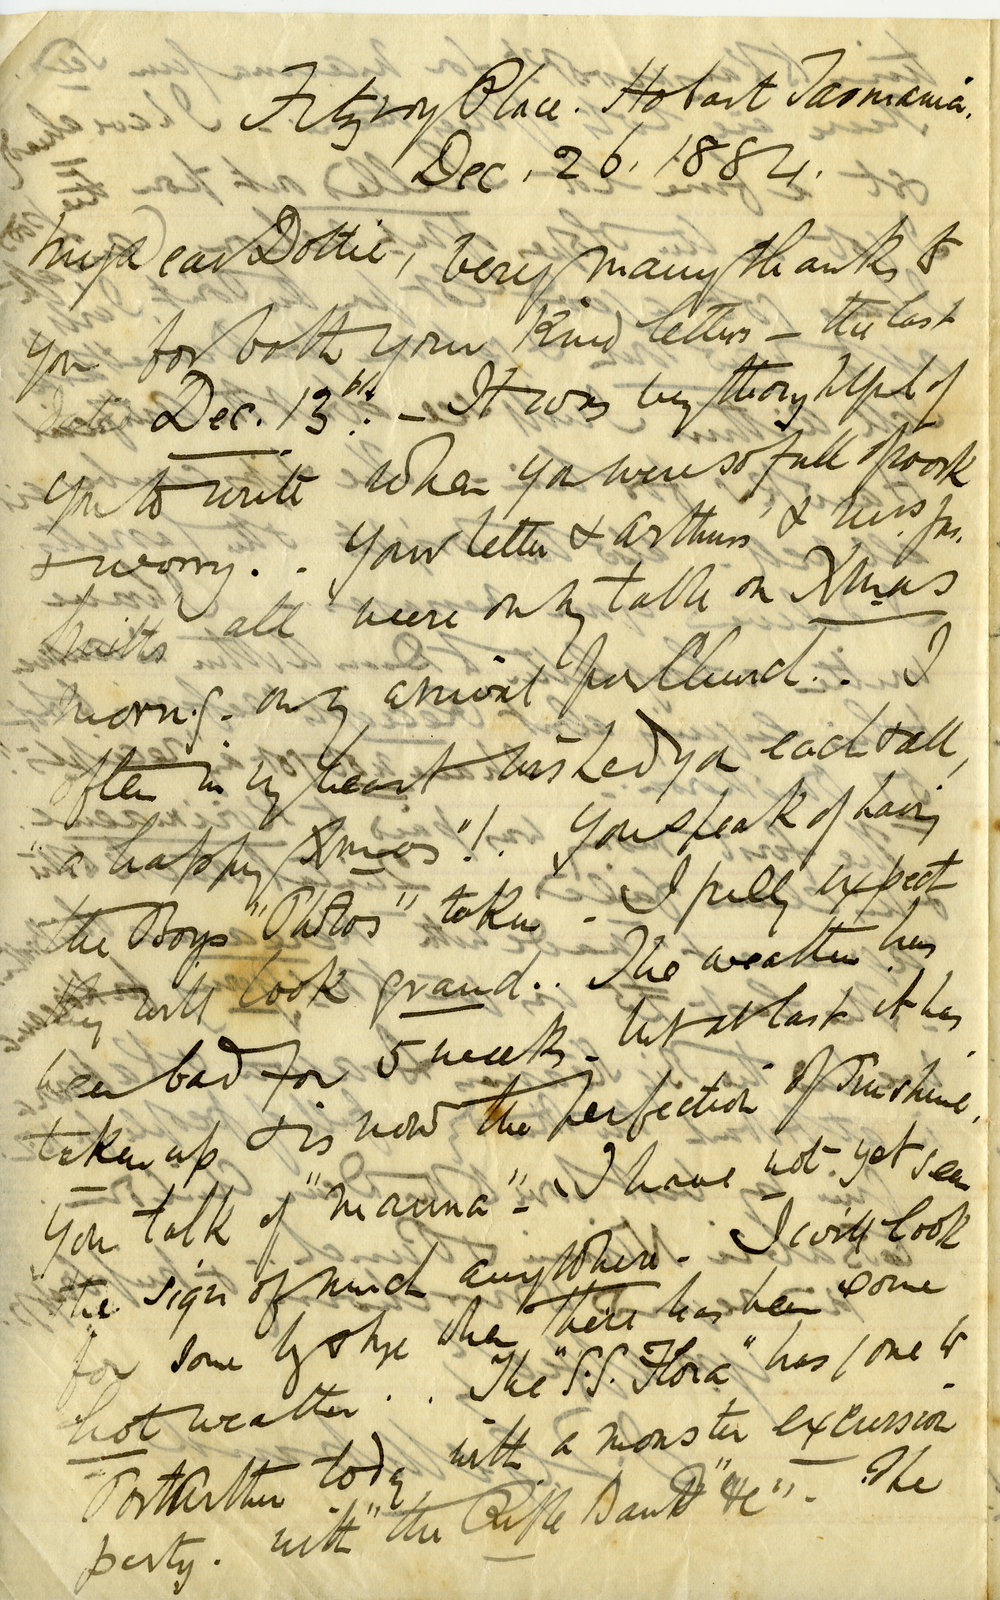 Fitzroy Place. Hobart Tasmania.
Dec. 26. 1884.
My dear Dottie, Very many thanks to
you for both your kind letters – the last
dated Dec. 13th. – It was very thoughtful of
you to write when you were so full of work
& worry. . Your letter & Arthurs' &
all were on my table on Xmas
morng. on my arrival from Church. . I
often in my heart wished you each & all,
"a happy Xmas"!. You speak of having
the Boys "Photos" taken – I fully expect
they will look grand. . The weather has
been bad for 5 weeks – but at last it has
taken up & is now the perfection of Sunshine.
You talk of "manna" – I have not yet seen
the sign of much anywhere – I will look
for some by & bye when there has been some
hot weather . . The "S.S. Flora" has gone to
Port Arthur today with a monster excursion
party. with "the Rifle Band" &c" – The